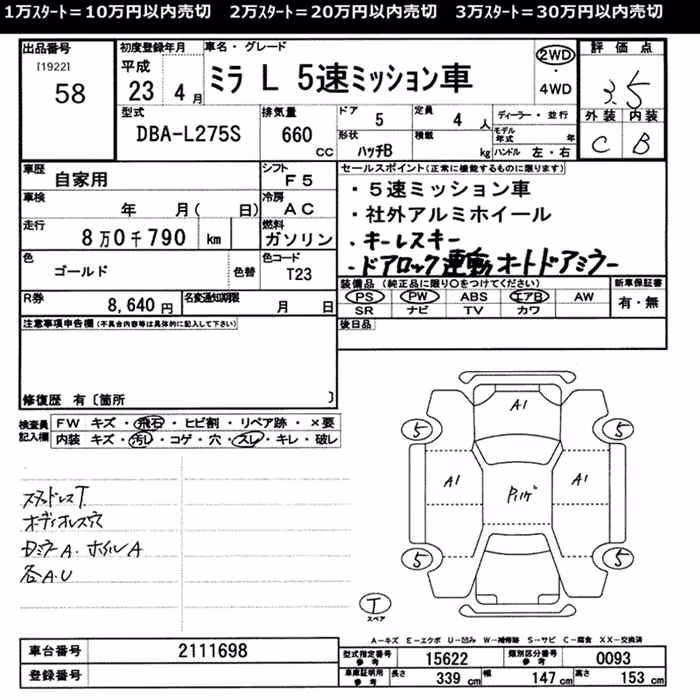 1万ｽﾀｰﾄ＝10万円以内売切　2万ｽﾀｰﾄ＝20万円以内売切　3万ｽﾀｰﾄ＝30万円以内売切
出品番号
[1922]
58
初度登録年月
平成
23 4 月
車名・グレード
ミラ L 5速ミッション車
2WD
・
4WD
評価点
3.5
外装 内装
C B
型式
DBA-L275S
排気量
660 CC
ドア
5
定員
4 人
形状
ハッチB
積載
kg
ディーラー・並行
モデル年式 年
ハンドル 左・右
車歴
自家用
シフト
F5
車検
年 月( 日)
冷房
AC
走行
8万0千790 km
燃料
ガソリン
色
ゴールド
色替
色コード
T23
R券
8,640 円
名変通知期限
月 日
セールスポイント(正常に機能するものに限ります)
・5速ミッション車
・社外アルミホイール
・キーレスキー
・ドアロック連動オートドアミラー
装備品 (純正品に限り○をつけてください)
PS PW ABS エアB AW
SR ナビ TV カワ
新車保証書
有・無
後日品
注意事項申告欄(不具合内容等は具体的に記入して下さい)
修復歴 有〔箇所 〕
検査員記入欄
FW キズ・飛石・ヒビ割・リペア跡・×要
内装 キズ・汚レ・コゲ・穴・スレ・キレ・破レ
スタッドレスT
オーディオレス穴
ホイルA
各A.U
A1
5 5
A1 A1
5 5
T
スペア
A－キズ E－エクボ U－凹み W－補修跡 S－サビ C－腐食 XX－交換済
車台番号
2111698
登録番号
型式指定番号参考
15622
類別区分番号参考
0093
車庫証明用参考
長さ 339 cm 幅 147 cm 高さ 153 cm